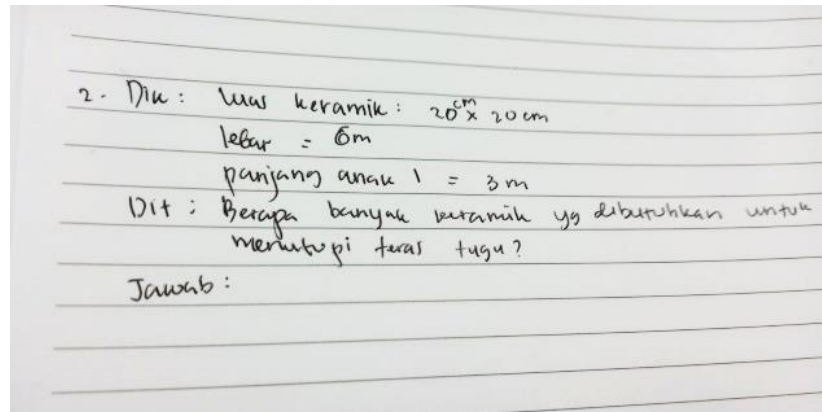 2. Dik : luas keramik : 20 cm x 20 cm
lebar = 6m
panjang anak 1 = 3 m
Dit : Berapa banyak keramik yg dibutuhkan untuk
menutupi teras tugu?
Jawab :